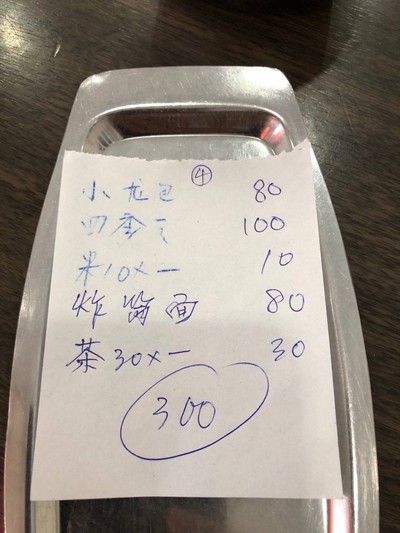 ④
小龙包 80
四季豆 100
米10x一 10
炸酱面 80
茶30x一 30
300